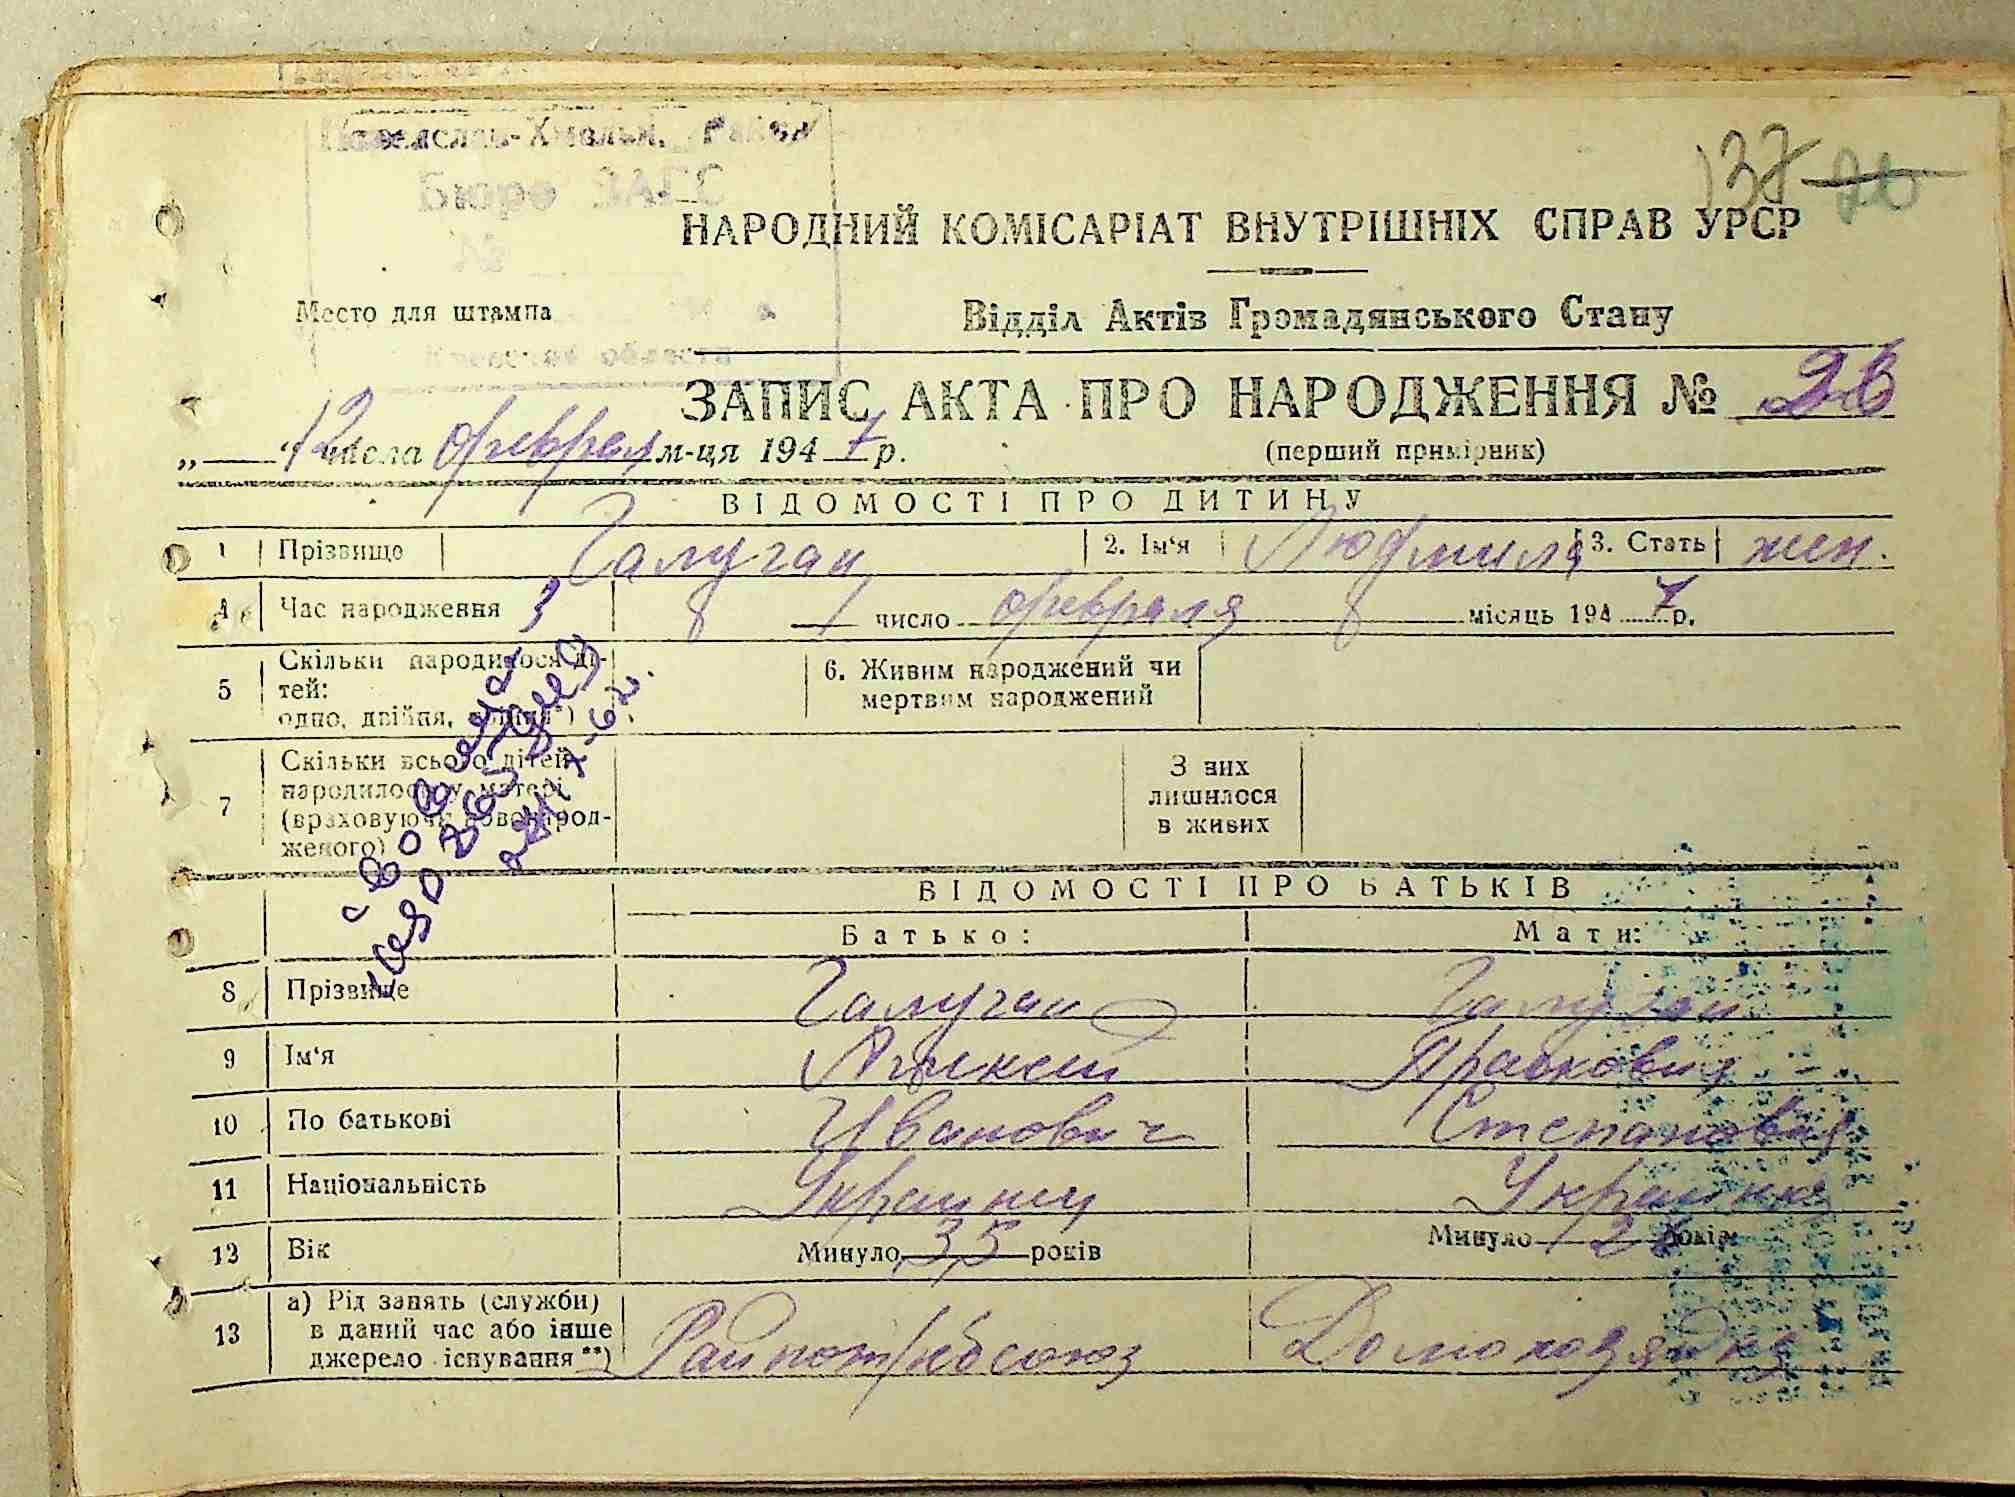 137 26
Хмельн. Район
Бюро ЗАГС
№
НАРОДНИЙ КОМІСАРІАТ ВНУТРІШНІХ СПРАВ УРСР
Место для штампа
Відділ Актів Громадянського Стану
области
ЗАПИС АКТА ПРО НАРОДЖЕННЯ №
„ “ 12 числа февраля м-ця 1947 р.
(перший примірник)
ВІДОМОСТІ ПРО ДИТИНУ
1 Прізвище Галуган 2. Ім‘я Людмила 3. Стать жен.
4 Час народження 1 число февраля місяць 1947 р.
5 Скільки народилося ді-
тей:
одно, двійня, трійня*)
6. Живим народжений чи
мертвим народжений
7 Скільки всього дітей
народилося у матері
(враховуючи новонарод-
женого)
З них
лишилося
в живих
ВІДОМОСТІ ПРО БАТЬКІВ
Батько: Мати:
8 Прізвище Галуган Галуган
9 Ім‘я Алексей Прасковия
10 По батькові Иванович Степановна
11 Національність Украинец Украинка
12 Вік Минуло 35 років Минуло років
13 а) Рід занять (служби)
в даний час або інше
джерело існування **)
Райпотребсоюз Домохозяйка